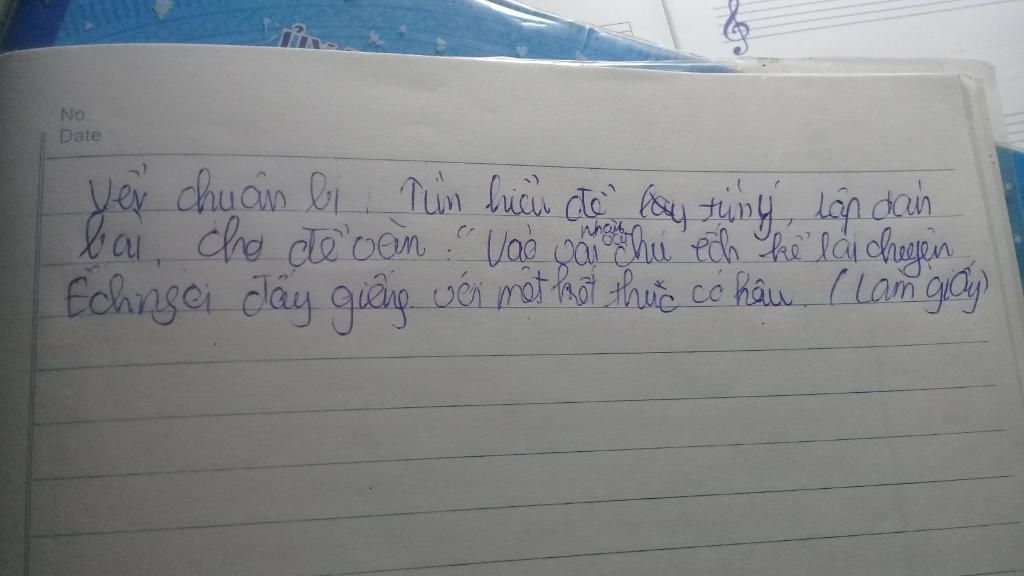 No.
Date
chuẩn bị. Tìm hiểu đề tìm ý, lập dàn
bài, cho đề văn: "Vào vai nhân vật chú ếch kể lại chuyện
Ếch ngồi đáy giếng với một kết thúc có hậu. (Làm giấy)